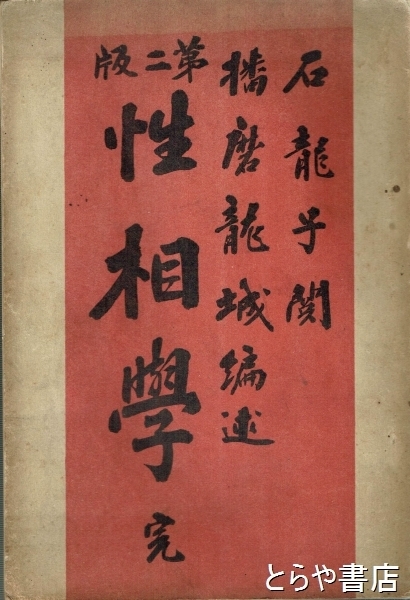 石龍子閲
播磨龍城編述
第二版
性相學完
とらや書店